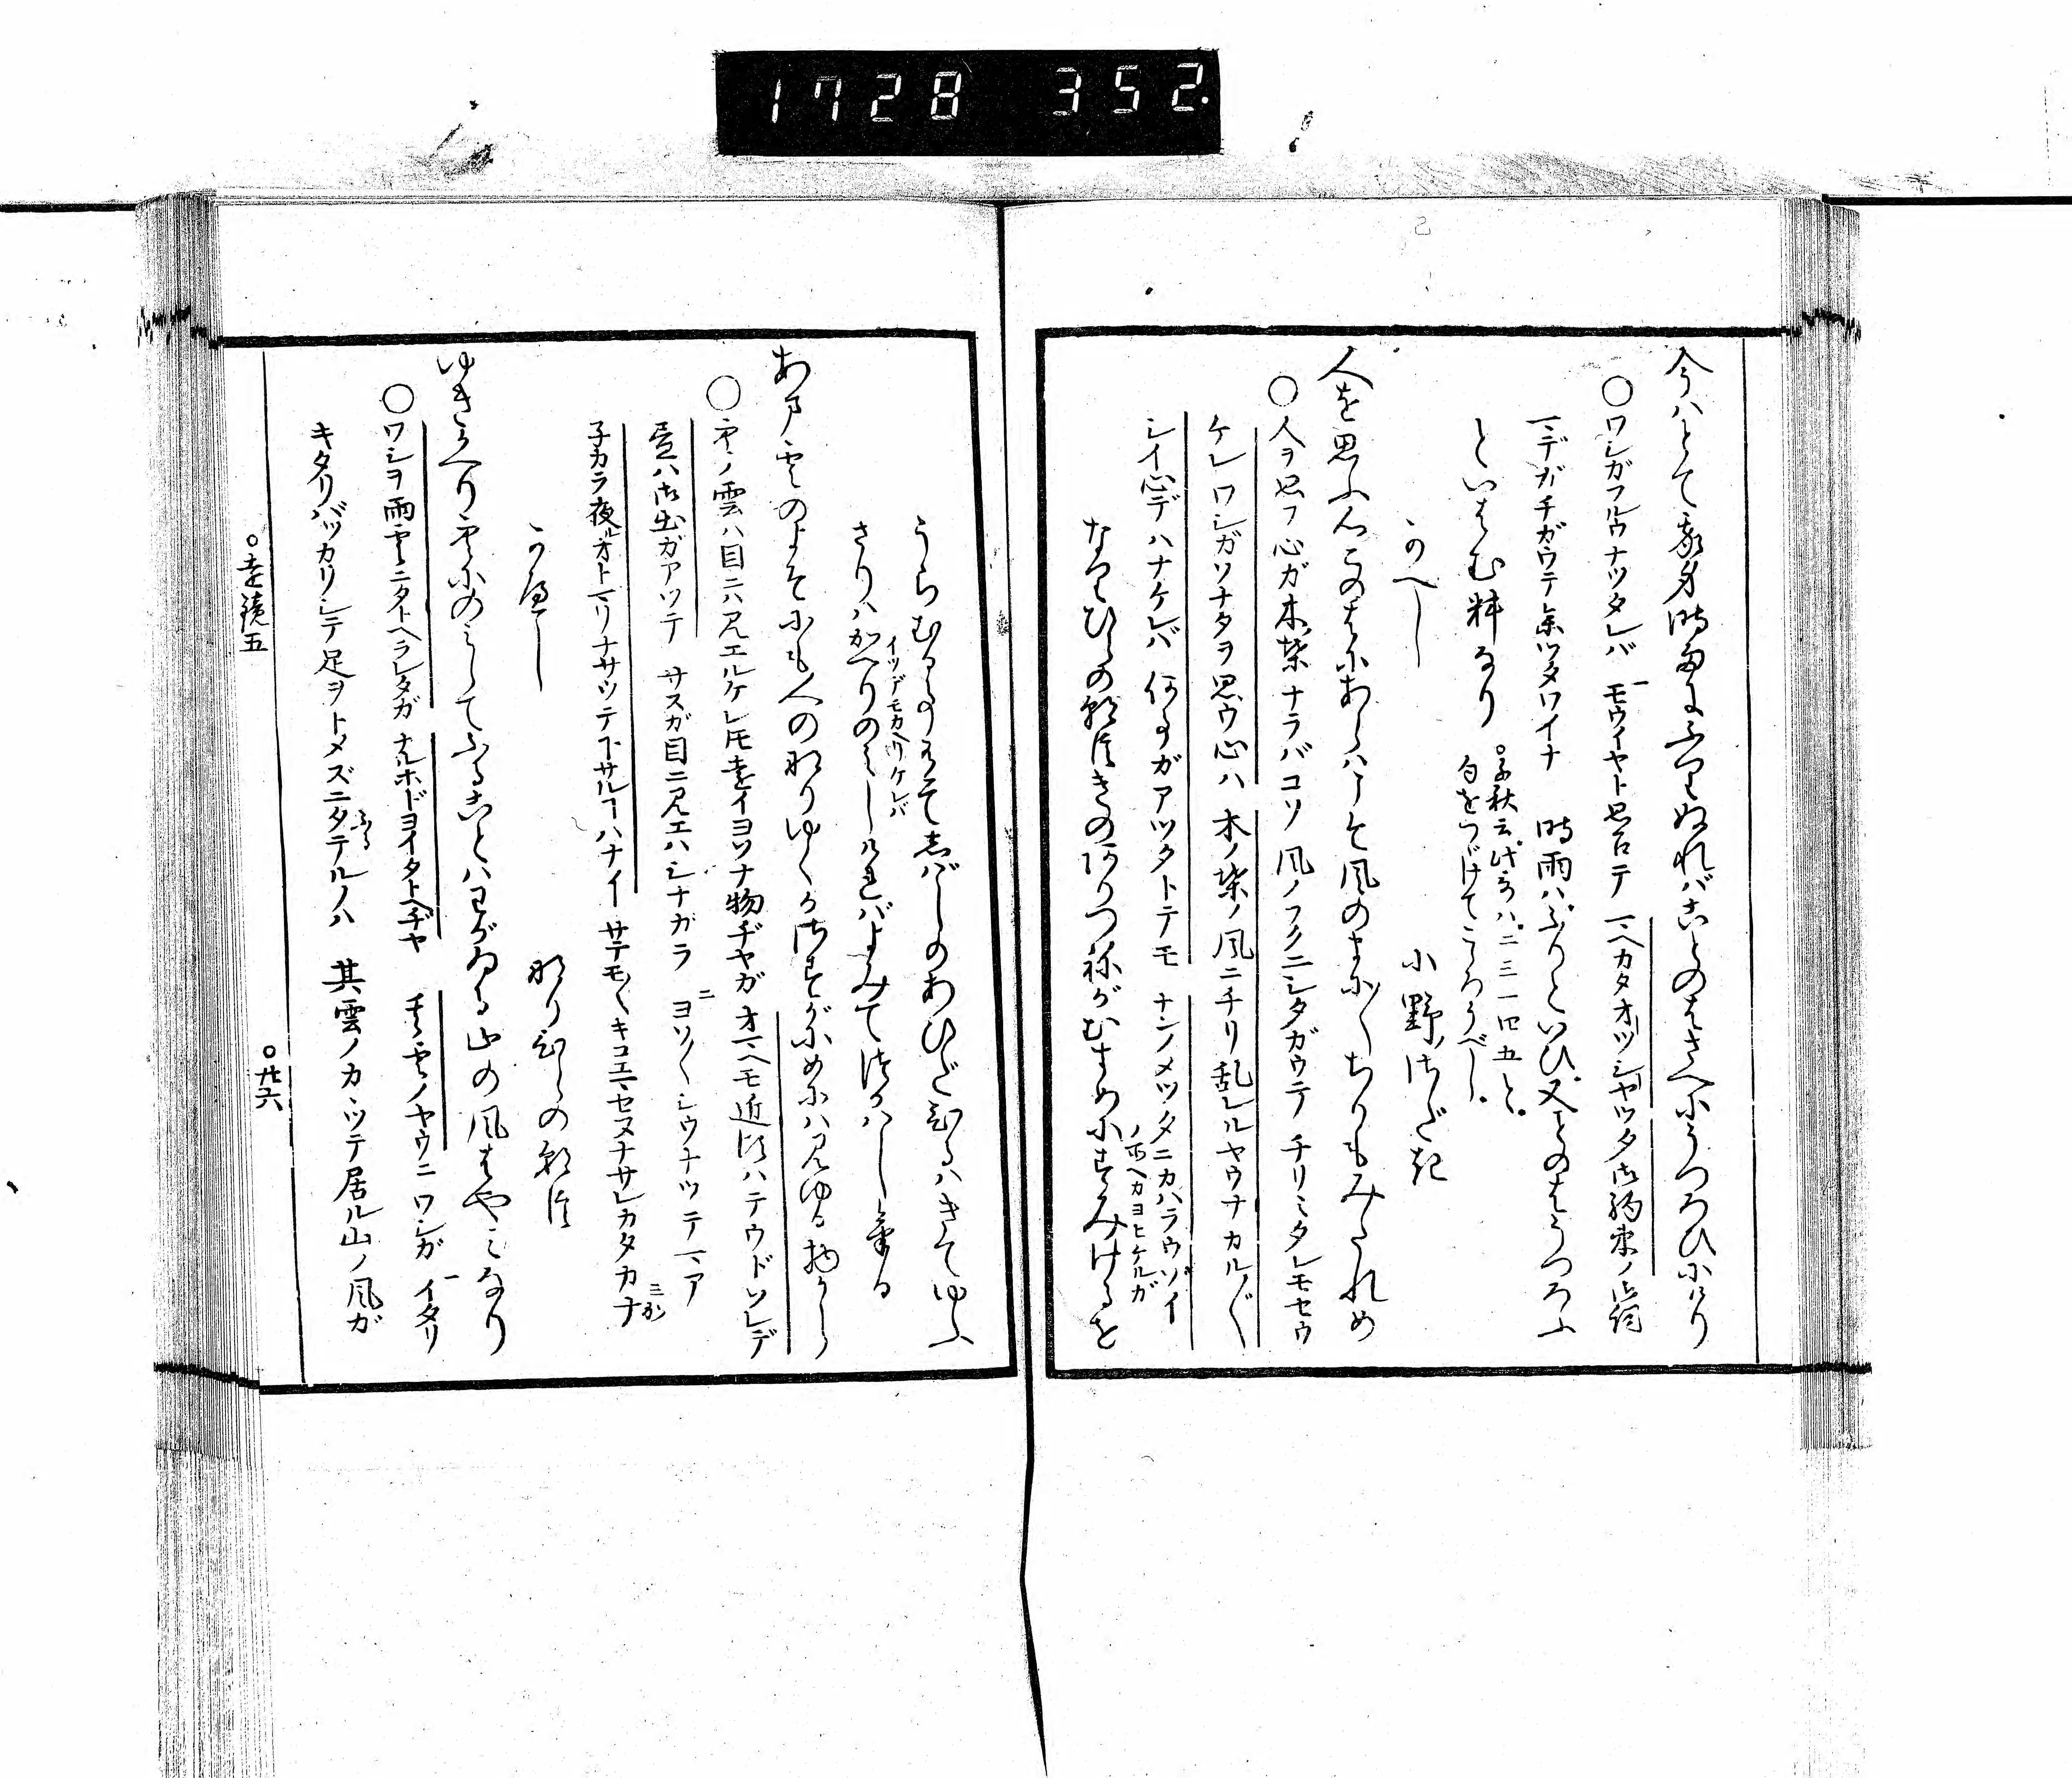 1728 352.
今ハとて我身時雨にふりぬればことのはさへにうつろひにけり
○ワシガフルウナツタレバ モウイヤト思召テ マヘカタオツシヤツタ御約束ノ御詞
マデガチガウテ参ツタワイナ 時雨ハふりといひ又ことのはうつろふ
といはむ料なり ○千秋云此哥ハ二三一四五と
句をつゞけてこゝろうべし
かへし 小野さだき
人を思ふ心このはにあらばこそ風のまに〳〵ちりもみだれめ
○人ヲ思フ心ガ木葉ナラバコソ 風ノフクニシタガウテ チリミダレモセウ
ケレ ワシガソナタヲ思ウ心ハ 木ノ葉ノ風ニチリ乱レルヤウナカル〴〵
シイ心デハナケレバ 何事ガアツタトテモ ナンノメツタニカハラウゾイ
なりひらの朝臣きのありつねがむすめにすみけるを
うらむることありてしばしのあひだひるハきてゆふ
さりハかへりのみしければよみてつかハしける
あま雲のよそにも人のなりゆくかさすがにめにハ見ゆる物から
○空ノ雲ハ目ニハ見エルケレドモ遠イヨソナ物ヂヤガ オマヘモ近頃ハテウドソレデ
昼ハ御出ガアツテ サスガ目ニ見エハシナガラ ヨソ〳〵シウナツテマア
子カラ夜ルオトマリナサツテ下サルコトハナイ サテモ〳〵キコエマセヌナサレカタカナ
かへし なりひらの朝臣
ゆきかへり空にのみしてふることハわがゐる山の風はやみなり
○ワシヲ雨雲ニタトヘラレタガ ナルホドヨイタトヘヂヤ 其雲ノヤウニ ワシガ イタリ
キタリバツカリシテ足ヲトメズニタテルノハ 其雲ノカヽツテ居ル山ノ風ガ
○遠鏡五
○廿六